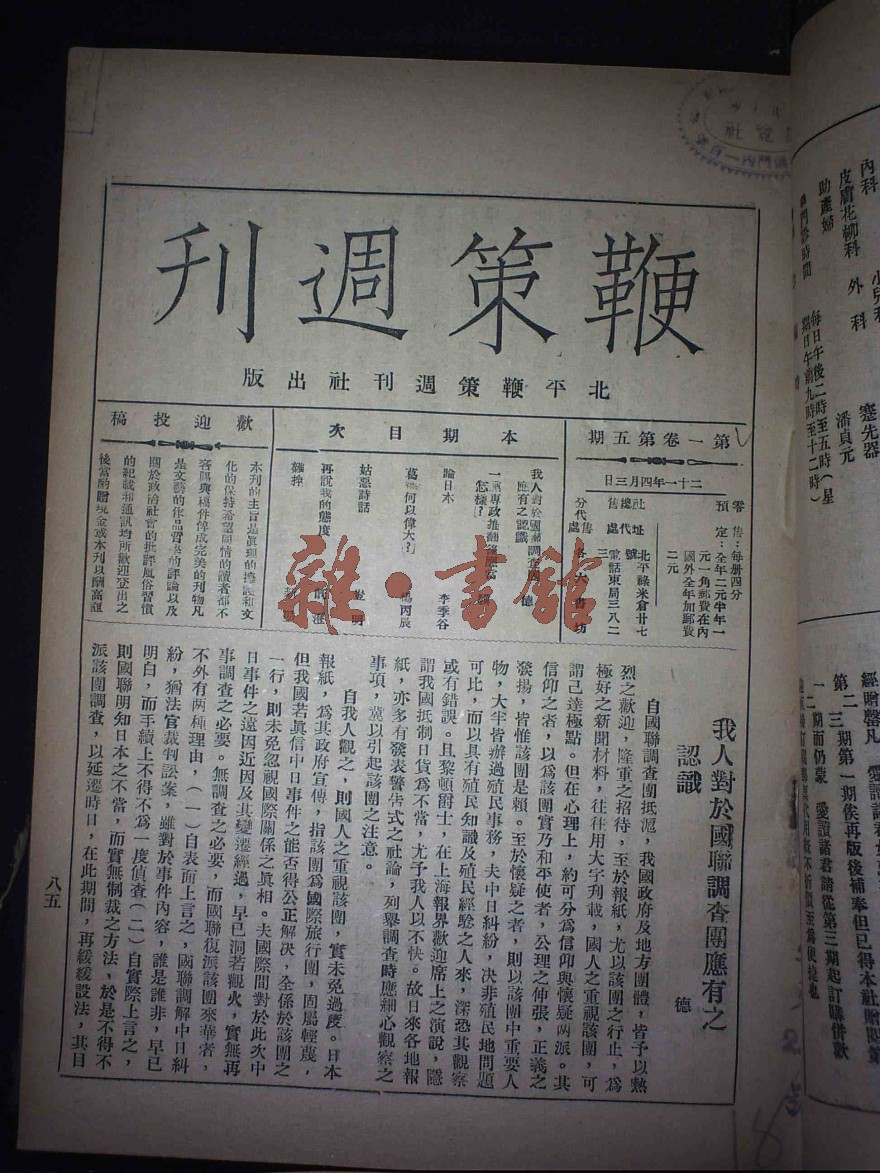 鞭策週刊
北平鞭策週刊社出版
第一卷第五期
二十一年四月三日
零售：每册四分
預定：全年二元半年一
元一角郵費在內
國外全年加郵費
二元
社址 北平祿米倉廿七
號
電話東局三八二
三
總代售處
分售代處 各大書坊
本期目次
我人對於國聯調查團
應有之認識 德
一黨專政推翻
怎樣？
論日本 李季谷
葛德何以偉大？ 楊丙辰
姑惡詩話 豈明
再說我的態度
雜拌
歡迎投稿
本刋的主旨是眞理的擁護和文
化的保持希望同情的讀者都不
客賜與稿件俾成完美的刋物凡
是文藝的作品習學的評論以及
關於政治社會的批評風俗習慣
的記載和通訊均所歡迎登出之
後當酌贈現金或本刋以酬高誼
我人對於國聯調查團應有之
認識
德
自國聯調查團抵滬，我國政府及地方團體，皆予以熱
烈之歡迎，隆重之招待，至於報紙，尤以該團之行止，爲
極好之新聞材料，往往用大字刋載，國人之重視該團，可
謂已達極點。但在心理上，約可分爲信仰與懷疑兩派。其
信仰之者，以爲該團實乃和平使者，公理之伸張，正義之
發揚，皆惟該團是賴。至於懷疑之者，則以該團中重要人
物，大半皆辦過殖民事務，夫中日糾紛，决非殖民地問題
可比，而以具有殖民知識及殖民經驗之人來，深恐其觀察
或有錯誤。且黎頓爵士，在上海報界歡迎席上之演說，隱
謂我國抵制日貨爲不當，尤予我人以不快。故日來各地報
紙，亦多有發表警告式之社論，列舉調查時應細心觀察之
事項，冀以引起該團之注意。
自我人觀之，則國人之重視該團，實未免過度。日本
報紙，爲其政府宣傳，指該團爲國際旅行團，固屬輕蔑，
但我國若眞信中日事件之能否得公正解决，全係於該團之
一行，則未免忽視國際關係之眞相。夫國際間對於此次中
日事件之遠因近因及其變遷經過，早已洞若觀火，實無再
事調查之必要。無調查之必要，而國聯復派該團來華者，
不外有兩種理由，（一）自表面上言之，國聯調解中日糾
紛，猶法官裁判訟案，雖對於事件內容，誰是誰非，早已
明白，而手續上不得不爲一度偵查（二）自實際上言之，
則國聯明知日本之不當，而實無制裁之方法，於是不得不
派該團調查，以延遷時日，在此期間，再緩緩設法，其目
八五
內科 小兒科
皮膚花柳科 外科
助產婦
蹇先器
潘貞元
門診時間
每日午後二時至五時（星
期日午前九時至十二時）
第二三期第一期俟再版後補奉但已得本社贈閱第
一二期而仍蒙 愛讀諸君請從第三期起訂購併欵
雜·書館